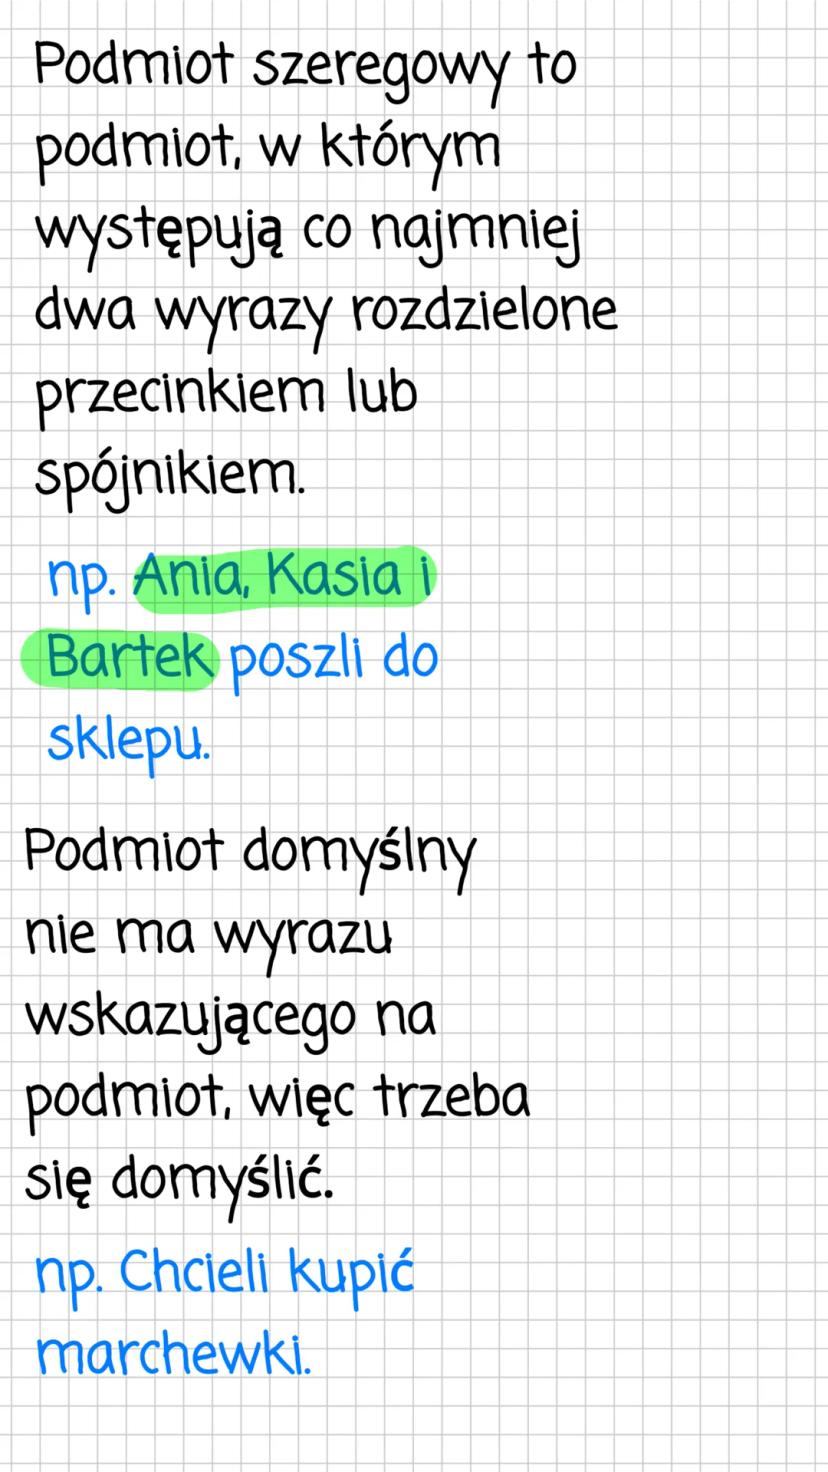 Podmiot szeregowy to
podmiot, w którym
występują co najmniej
dwa wyrazy rozdzielone
przecinkiem lub
spójnikiem.
np. Ania, Kasia i
Bartek poszli do
sklepu.
Podmiot domyślny
nie ma wyrazu
wskazującego na
podmiot, więc trzeba
się domyślić.
np. Chcieli kupić
marchewki.